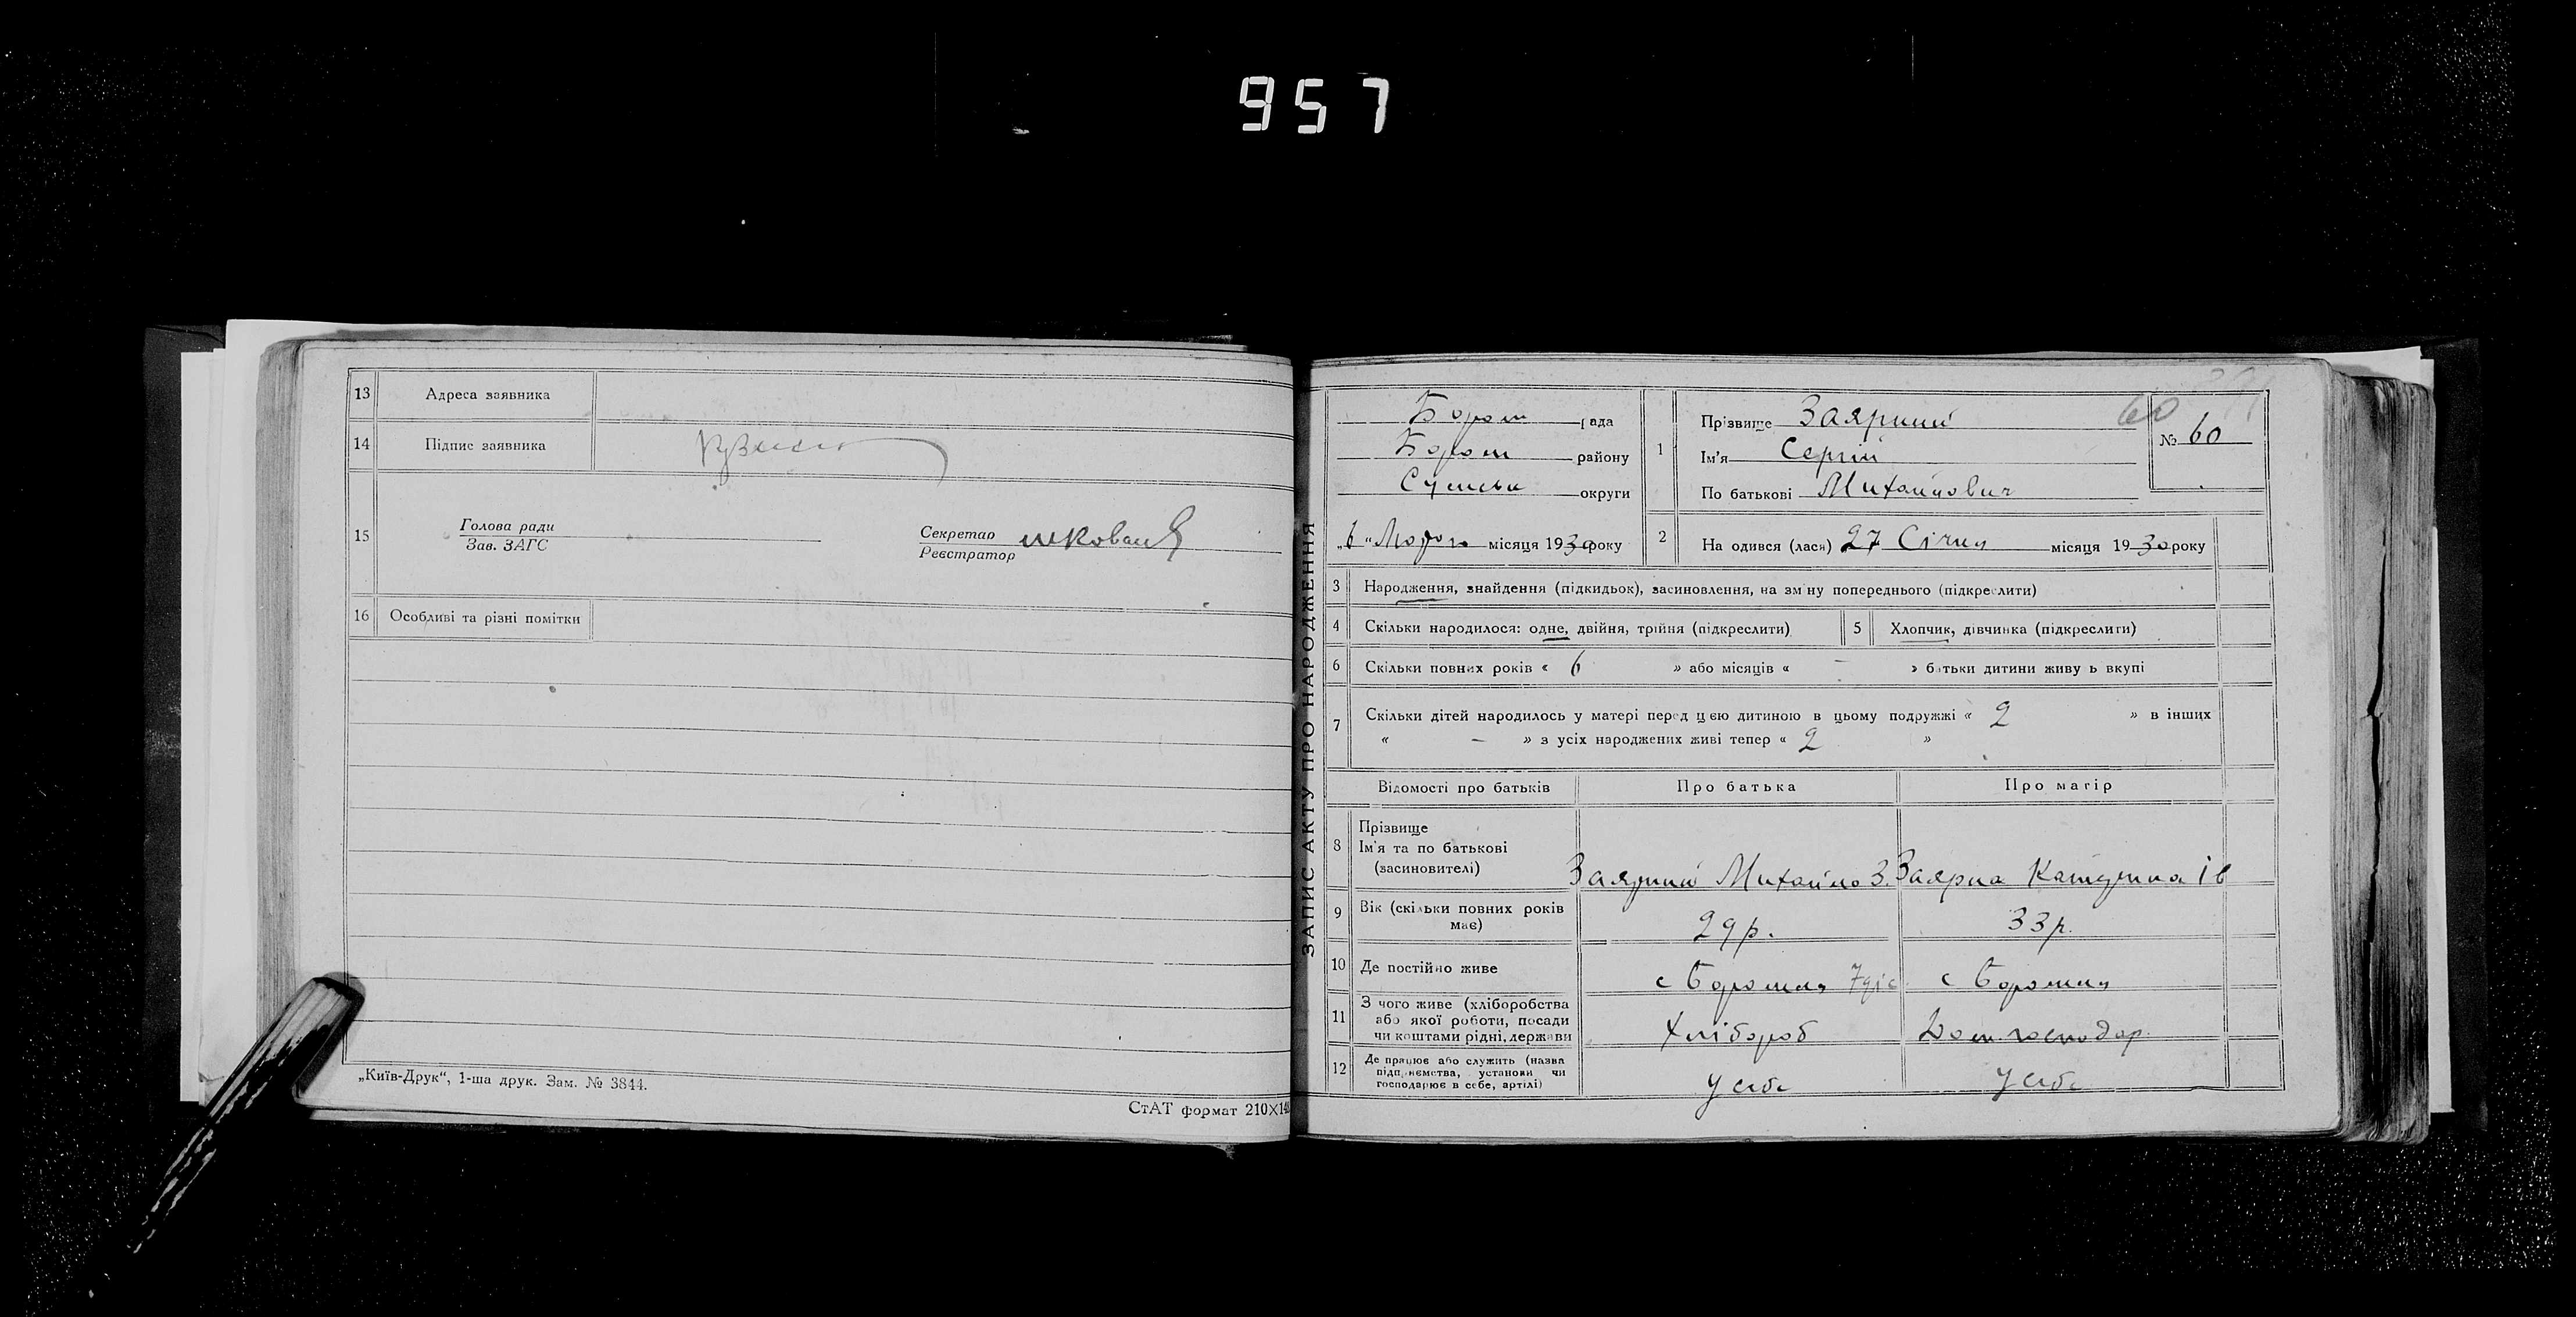 957
13 Адреса заявника
14 Підпис заявника
15 Голова ради
Зав. ЗАГС
Секретар
Реєстратор
16 Особливі та різні помітки
„Київ-Друк“, 1-ша друк. Зам. № 3844.
СтАТ формат 210X14
ЗАПИС АКТУ ПРО НАРОДЖЕННЯ
Бором рада
Бором району
Сумськ округи
„6“ місяця 1930 року
1 Прізвище Заярний
Ім'я Сергій
По батькові Михайлович
60
№ 60
2 На одився (лася) 27 Січня місяця 1930 року
3 Народження, знайдення (підкидьок), засиновлення, на зм ну попереднього (підкреслити)
4 Скільки народилося: одне, двійня, трійня (підкреслити) 5 Хлопчик, дівчинка (підкреслити)
6 Скільки повних років « 6 » або місяців « – » батьки дитини живу ь вкупі
7 Скільки дітей народилось у матері перед цею дитиною в цьому подружжі « 2 » в інших
« – » з усіх народжених живі тепер « 2 »
Відомості про батьків Про батька Про матір
8 Прізвище
Ім'я та по батькові
(засиновителі)
Заярний Михайло З. Заярна Катерина Ів
9 Вік (скільки повних років
має)
29 р. 33 р.
10 Де постійно живе с Боромля с Боромля
11 З чого живе (хліборобства
або якої роботи, посади
чи коштами рідні, держави
Хлібороб Дом. господар.
12 Де працює або служить (назва
підприємства, установи чи
господарює в себе, артілі)
У себе У себе